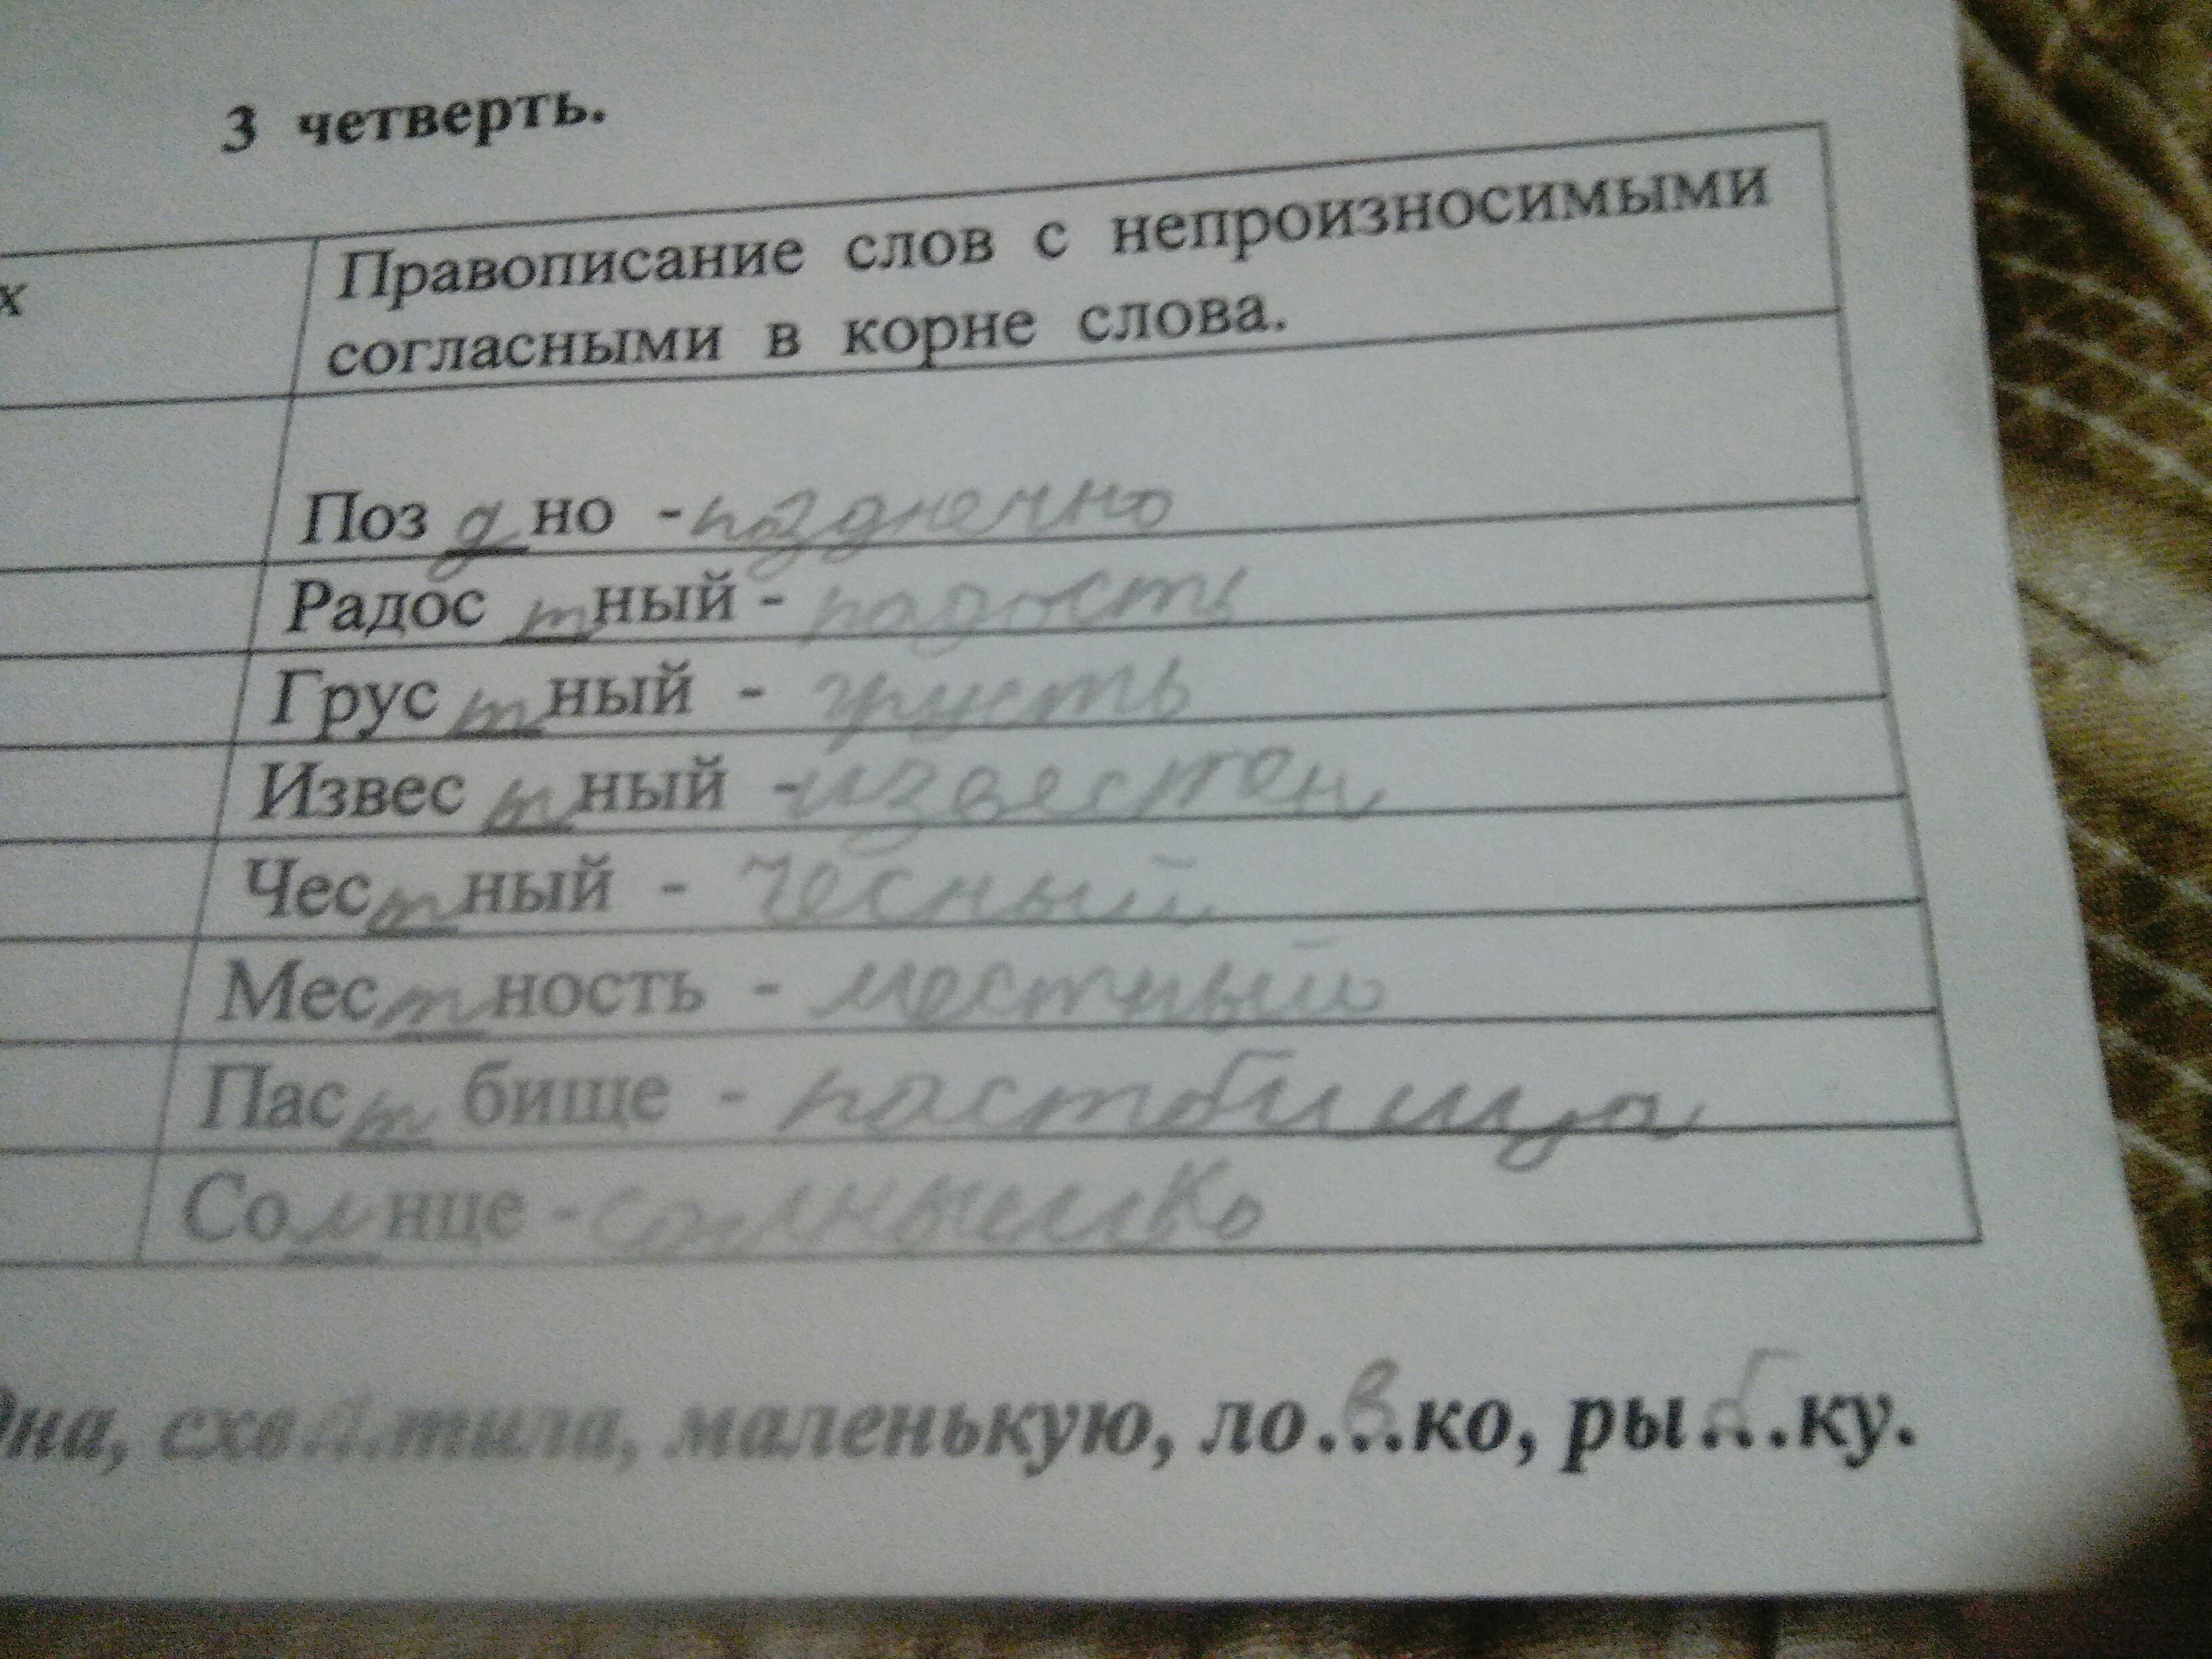 3 четверть.
х
Правописание слов с непроизносимыми
согласными в корне слова.
Поз д но - позднечно
Радос т ный - радость
Грус т ный - грусть
Извес т ный - известен
Чес т ный - чесный
Мес т ность - местный
Пас т бище - пастбища
Со л нце - солнышко
дна, схв а .тила, маленькую, ло .в..ко, ры б..ку.